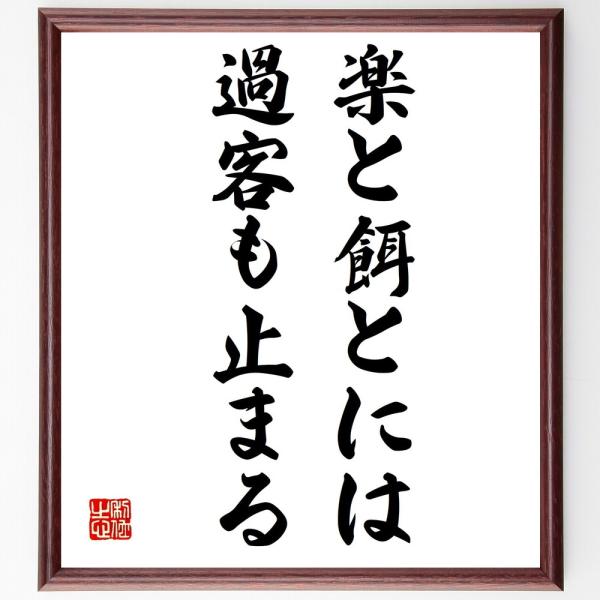 楽と餌とには
過客も止まる